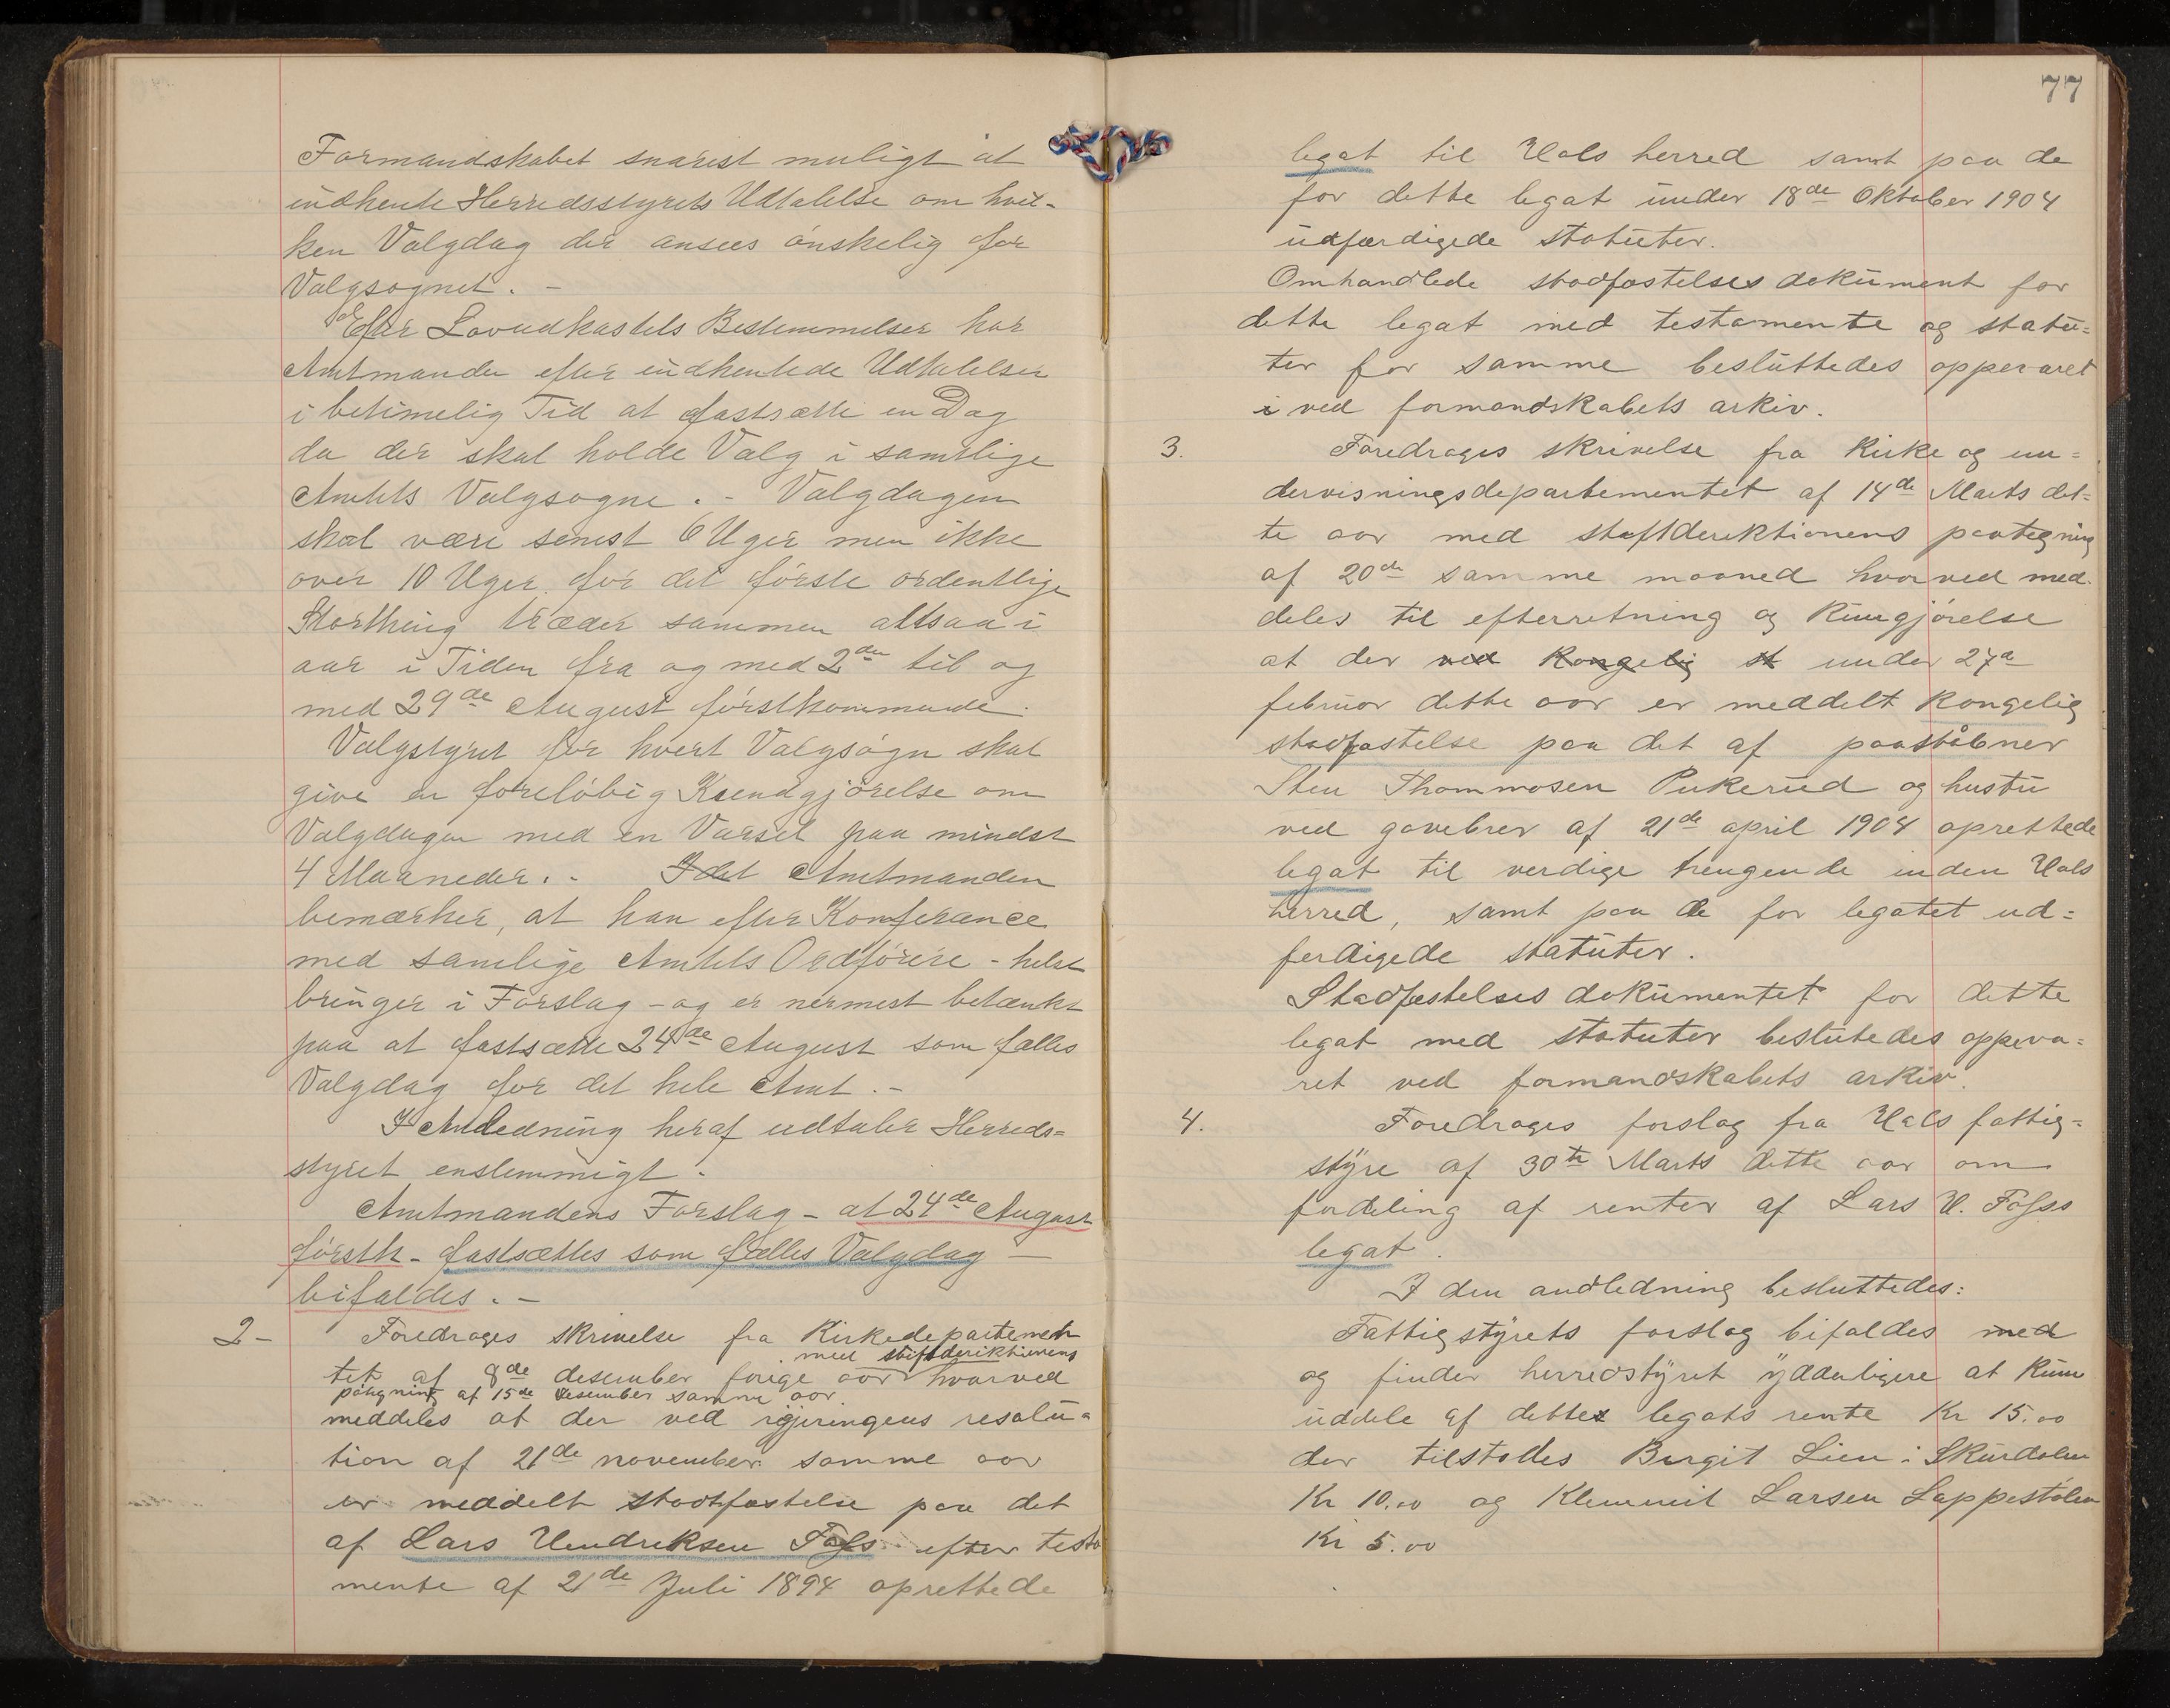 Formandskabet snarest muligt at
indhente Herredsstyrets Udtalelse om hvil-
ken Valgdag der ansees ønskelig for
Valgsognet. -
Efter Lovudkastets Bestemmelser har
Amtmanden efter indhentede Udtalelser
i betimelig Tid at fastsætte en Dag
da der skal holde Valg i samtlige
Amtets Valgsogne. - Valgdagen
skal være senest 6 Uger men ikke
over 10 Uger før det første ordentlige
Storthing træder sammen altsaa i
aar i Tiden fra og med 2den til og
med 29de August førstkommende.
Valgstyret for hvert Valgsogn skal
give en foreløbig Kundgjørelse om
Valgdagen med en Varsel paa mindst
4 Maaneder. - I det Amtmanden
bemærker, at han efter Konferance
med samlige Amtets Ordførere - helst
bringer i Forslag - og er nermest betænkt
paa at fastsætte 24de August som fælles
Valgdag for det hele Amt. -
I Anledning heraf udtaler Herreds=
styret enstemmigt:
Amtmandens Forslag - at 24de August
førstk - fastsættes som fælles Valgdag -
bifaldes. -
2- Foredrages skrivelse fra Kirkedepartemen
med stiftderiktionens
tet af 8de desember forige aar hvorved
påtegning af 15de desember samme aar
meddeles at der ved regjeringens resolu=
tion af 21de november samme aar
er meddelt stadfæstelse paa det
af Lars Hendreksen Fåss efter testa
mente af 21de Juli 1894 oprettede
77
legat til Uals herred samt paa de
for dette legat under 18de Oktober 1904
udfærdigede statuter.
Omhandlede stadfæstelses dokument for
dette legat med testamente og statu=
ter for samme besluttedes oppevaret
i ved formandskabets arkiv.
3. Foredrages skrivelse fra Kirke og un=
dervisningsdepartementet af 14de Marts det=
te aar med stiftdirektionens paategning
af 20de samme maaned hvorved med-
deles til efterretning og Kungjørelse
at der ved Kongelig st under 27de
februar dette aar er meddelt Kongelig
stadfæstelse paa det af
Sten Thommosen Pukerud og hustru
ved gavebrev af 21de april 1904 oprettede
legat til verdige trengende inden Uals
herred, samt paa de for legatet ud=
ferdigede statuter.
Stadfæstelses dokumentet for dette
legat med statuter beslutedes oppeva=
ret ved formandskabets arkiv.
4. Foredrages forslag fra Uals fattig=
styre af 30te Marts dette aar om
fordeling af renter af Lars H. Fåsss
legat.
I den andledning besluttedes:
Fattigstyrets forslag bifaldes med
og finder herredstyret ydderligere at Kun
uddele af dettes legats rente Kr 15.00
der tilstaaes Birgit Lien i Skurdalen
Kr 10.00 og Klemmit Larsen Lappestølen
Kr 5.00